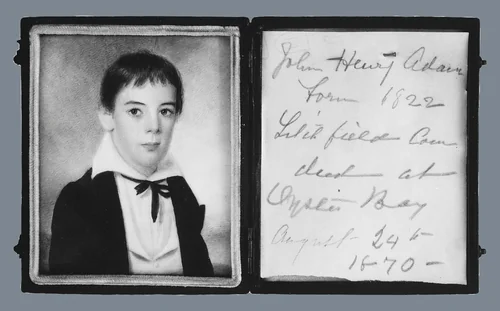 John Henry Adam
born 1822
Litchfield Con
died at
Oyster Bay
August 24th
1870-